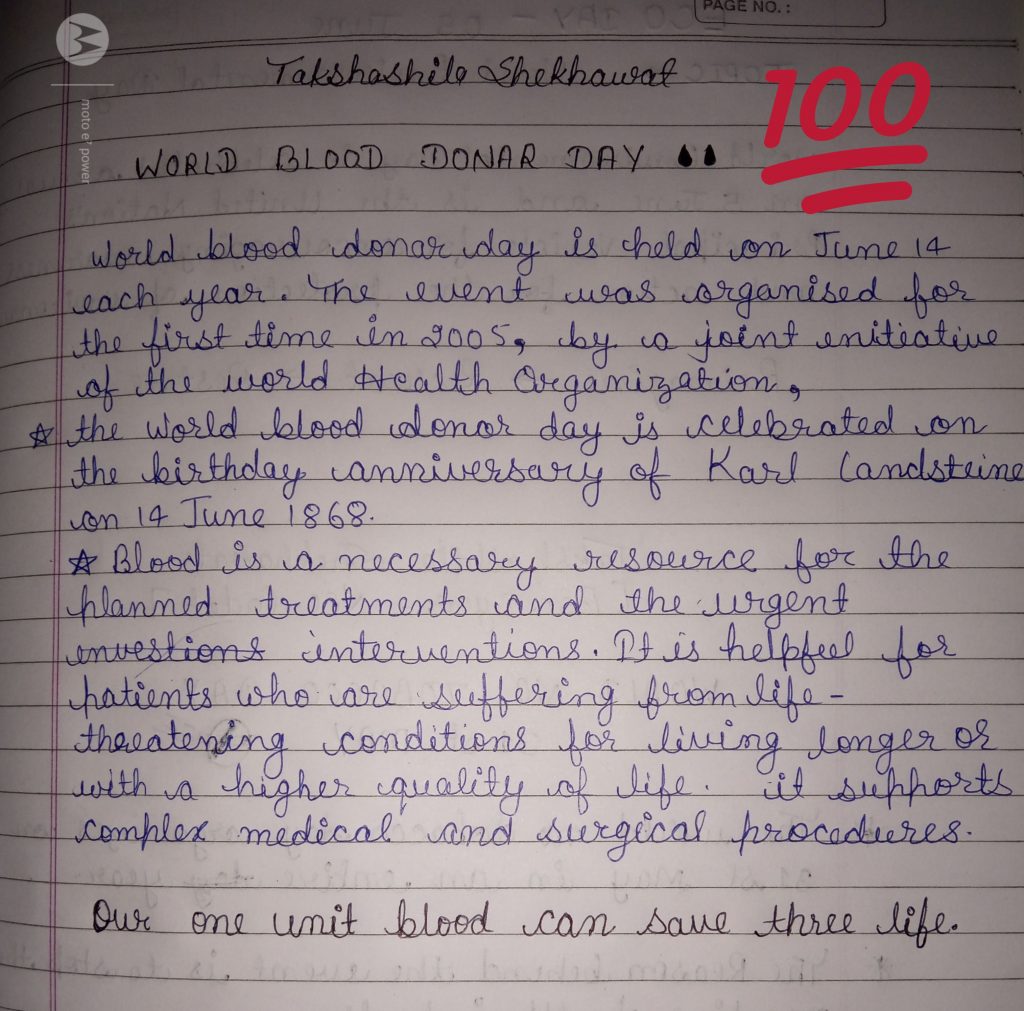 PAGE NO.:
Takshashila Shekhawat
100
WORLD BLOOD DONAR DAY
moto e⁶ power
World blood donar day is held on June 14
each year. The event was organised for
the first time in 2005, by a joint enitiative
of the world Health Organization,
☆ the World blood donor day is celebrated on
the birthday anniversary of Karl Landsteine
on 14 June 1868.
☆ Blood is a necessary resource for the
planned treatments and the urgent
envestions interventions. It is helpful for
patients who are suffering from life-
threatening conditions for living longer or
with a higher quality of life. it supports
complex medical and surgical procedures.
Our one unit blood can save three life.